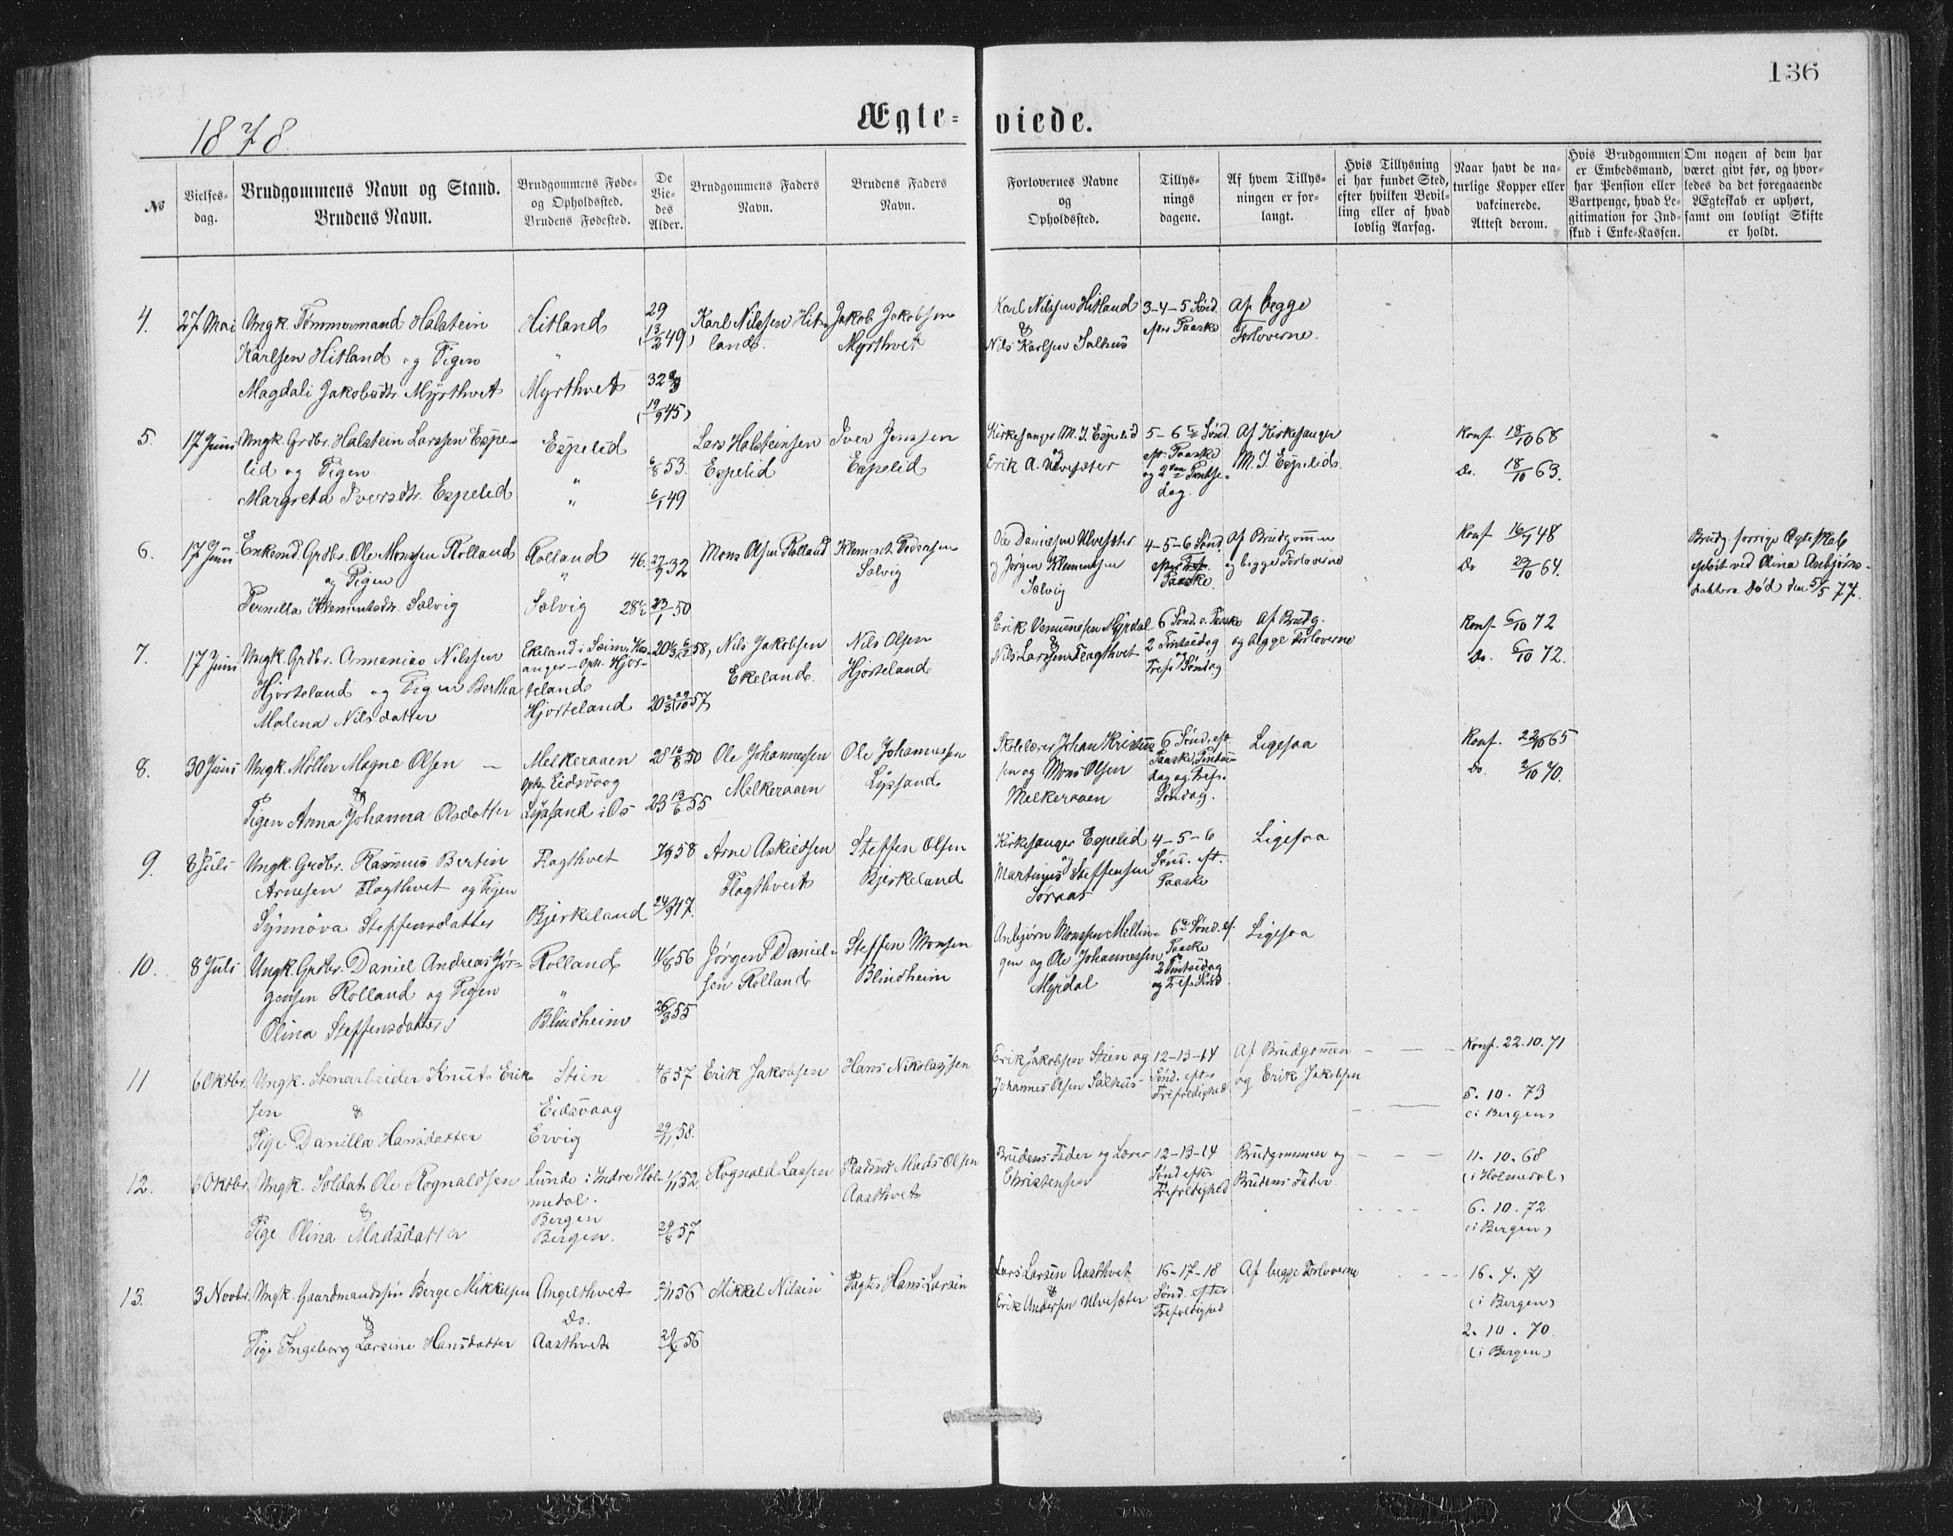 136
1878.
Ægte-viede.
№
Vielses-
dag.
Brudgommens Navn og Stand.
Brudens Navn.
Brudgommens Føde-
og Opholdssted.
Brudens Fødested.
De
Vie-
des
Alder.
Brudgommens Faders
Navn.
Brudens Faders
Navn.
Forlovernes Navne
og
Opholdssted.
Tillys-
nings
dagene.
Af hvem Tillys-
ningen er for-
langt.
Hvis Tillysning
ei har fundet Sted,
efter hvilken Bevil-
ling eller af hvad
lovlig Aarsag.
Naar havt de na-
turlige Kopper eller
vakcinerede.
Attest derom.
Hvis Brudgommen
er Embedsmand,
har Pension eller
Vartpenge, hvad Le-
gitimation for Ind-
skud i Enke-Kassen.
Om nogen af dem har
været givt før, og hvor-
ledes da det foregaaende
Ægteskab er ophørt,
samt om lovligt Skifte
er holdt.
4. 27 Mai Ungk. Tømmermand Halstein
Karlsen Hitland og Pigen
Magdali Jakobsdtr. Myrthvet
Hitland
"
Myrthvet
29
(13/2 49)
32
(19/9 45)
Karl Nilssen Hit-
land.
Jakob Jakobsen
Myrthvet
Karl Nilssen Hitland
&
Nils Karlsen Salhus
3-4-5 Sønd.
efter Paaske
Af begge
Forloverne.
5. 17 Juni Ungk. Grdbr. Halstein Larssen Espe-
lid og Pigen
Margreta Iversdtr. Espelid
Espelid
"
"
6/8 53.
6/1 49
Lars Halsteinsen
Espelid
Iver Jenssen
Espelid
Kirkesanger M. I. Espelid
og
Erik A. Ulvesæter
5-6te Sønd.
eft. Paaske
og 2den Pintse-
dag.
Af Kirkesanger
M. I. Espelid.
Konf. 18/10 68
Do. 18/10 63.
6. 17 Juni Enkemd. Grdbr. Ole Monssen Rolland
og Pigen
Pernilla Klemetsdtr. Salvig
Rolland
"
Salvig
46. 27/9 32
28½ 23/1 50
Mons Olsen Rolland
Klemet Pedersen
Salvig
Ole Danielsen Ulvesæter
og Jørgen Klemetsen
Salvig
4-5-6 Sønd.
efter Tref.
Paaske
Af Brudgommen
og begge Forloverne
Konf. 16/7 48
Do 29/10 64.
Brudg. forrige Ægteskab
opløst ved Olina Anbjørns-
datters Død den 5/5 77.
7. 17 Juni Ungk. Grdbr. Annanias Nilssen
Hjorteland og Pigen Bertha
Malena Nilsdatter
Ekeland i Sæim, Ho-
anger - Oph. Hjor-
teland
Hjorteland
58,
29/10 57,
Nils Jakobsen
Ekeland.
Nils Olsen
Hjorteland
Erik Monssen Myrdal
&
Nils Larssen Flagthvet
6 Sønd. e. Paaske
2 Pintsedag
og
Tref. Søndag
Af Brudg.
og begge Forloverne
Konf. 6/10 72
Do. 6/10 72.
8. 30 Juni Ungk. Møller Magne Olsen -
&
Pigen Anna Johanna Olsdatter
Melkeraaen
oph. Eidsvaag
Lyssand i Os
28 16/8 50
23 13/6 55
Ole Johannessen
Melkeraaen
Ole Johannessen
Lyssand
Skolelærer Johan Kristian-
sen og Mons Olsen
Melkeraaen
6 Sønd. eft
Paaske, Pintse-
dag og Tref.
Søndag.
Ligesaa
Konf. 65
Do. 2/10 70.
9. 8 Juli Ungk. Grdbr. Rasmus Bertin
Arnesen Flagthvet og Pigen
Synnøva Steffensdatter
Flagthvet
Bjerkeland
7/9 58
24/9 47.
Arne Askildsen
Flagthveit
Steffen Olsen
Bjerkeland
Kirkesanger Espelid
og
Martinus Steffensen
Søraas
4-5-6
Sønd. eft.
Paaske
Ligesaa
10. 8 Juli Ungk. Grdbr. Daniel Andreas Jør-
gensen Rolland og Pigen
Olina Steffensdatter
Rolland
"
Blindheim
11/8 56
26/3 55
Jørgen Daniel-
sen Rolland
Steffen Monsen
Blindheim
Anbjørn Monssen Mellin-
gen og Ole Johannessen
Myrdal
6te Sønd. ef.
Paaske
2 Pintsedag
og Tref. Sønd
Ligesaa
11 6 Oktbr. Ungk. Stenarbeider Knut Erik-
sen &
Pige Danilla Hansdatter
Stien
Eidsvaag
Ervig
4/6 57
29/11 58.
Erik Jakobsen
Hans Nikolaysen
Erik Jakobsen Stien og
Johannes Olsen Salhus
12-13-14
Sønd. eft.
Trefoldighed
Af Brudgommen
og Erik Jakobsen
Konf. 22.10.71
5. 10. 73
(i Bergen)
12. 6 Oktbr. Ungk. Soldat Ole Rognaldsen
&
Pige Olina Madsdatter
Lunde i Indre Hol-
medal.
Bergen
Bergen.
1/11 52
29/8 57
Rognald Lassen
Mads Olsen
Aasthvet
Brudens Fader og Lærer
Christensen
12-13-14
Sønd efter
Trefoldighed
Brudgommen og
Brudens Fader.
11. 10. 68
(i Holmedal)
6. 10. 72
(i Bergen)
13. 3 Novbr. Ungk. Gaardmandssøn Berge Mikkelsen
&
Pige Ingeborg Larsine Hansdatter
Angelthvet
Do.
Aasthvet
56
56
Mikkel Nilsen
Hans Larsen
Lars Larsen Aasthvet
&
Erik Andersen Ulvesæter
16-17-18
Sønd. efter
Trefoldighed
Af begge Forloverne
16. 4. 71
(i Bergen)
2. 10. 70.
(i Bergen)